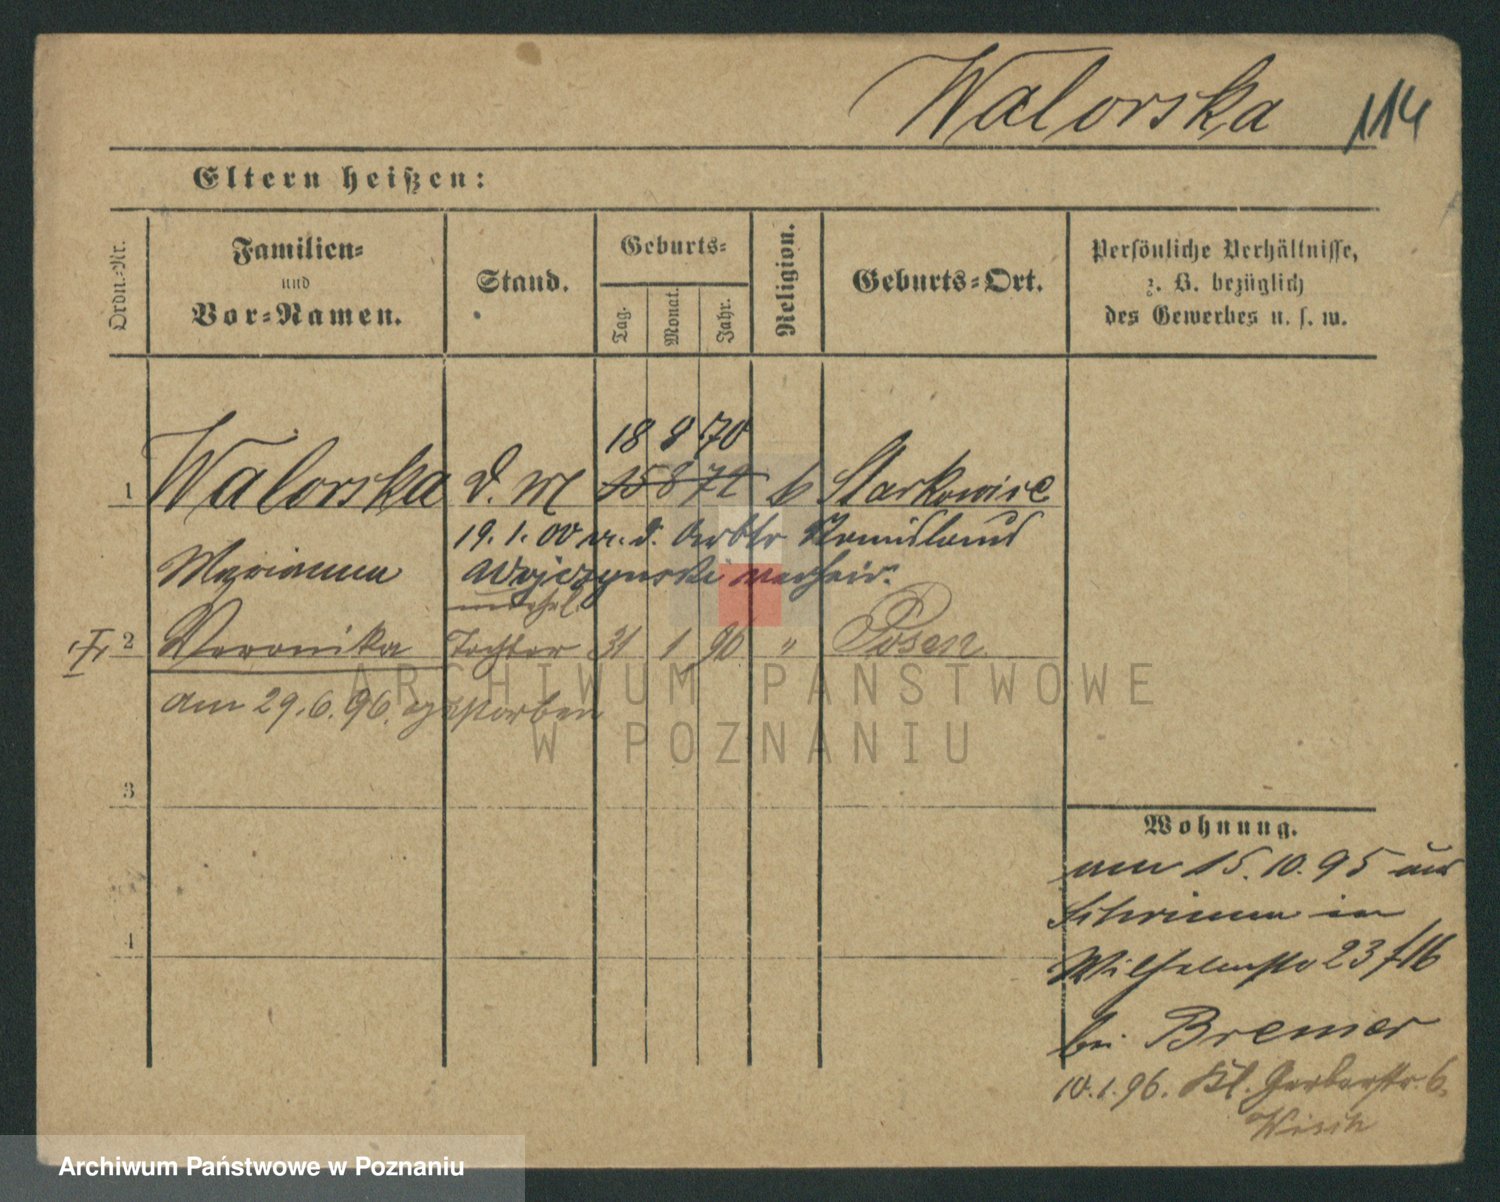 Walorska 114
Eltern heißen:
Ordn.-Nr.
Familien-
und
Vor-Namen.
Stand.
Geburts-
Tag.
Monat.
Jahr.
Religion.
Geburts-Ort.
Persönliche Verhältnisse,
z. B. bezüglich
des Gewerbes u. s. w.
18 8 70
1 Walorska d. M 15 8 72 k Starkowice
19. 1. 00 m. d. Arbtr Stanislaus
Marianna Wojczynski verheir.
unehel.
2 Veronika Tochter 31 1 96 " Posen
am 29.6.96. gestorben
ARCHIWUM PAŃSTWOWE
W POZNANIU
3
4
Wohnung.
am 15.10.95 aus
Schrimm in
Wilhelmstr 23
bei Bremer
10.1.96. Kl. Gerberstr. 6.
Archiwum Państwowe w Poznaniu